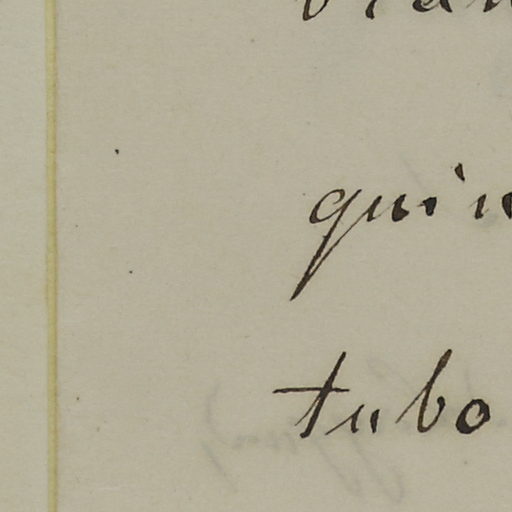 quin
tubo